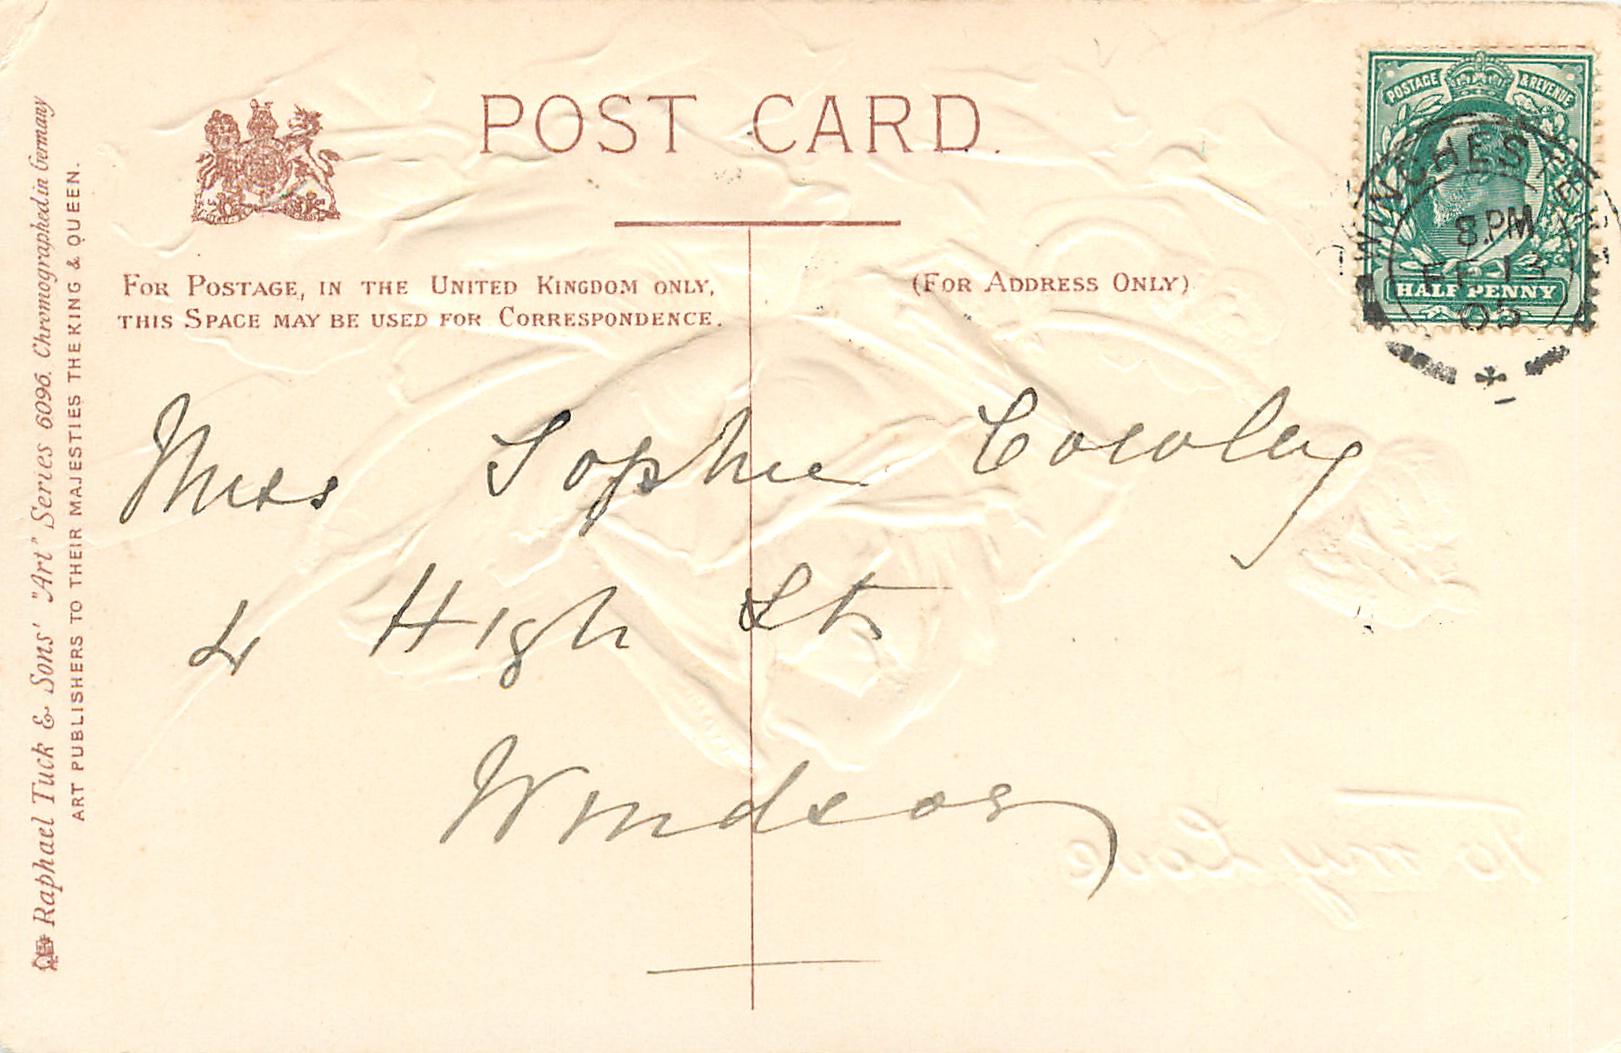 POST CARD.
POSTAGE & REVENUE
WINCHESTER
8.PM
FE 13
05
HALF PENNY
FOR POSTAGE, IN THE UNITED KINGDOM ONLY,
THIS SPACE MAY BE USED FOR CORRESPONDENCE.
(FOR ADDRESS ONLY)
Miss Sophie Cowley
4 High St
Windsor
To my Love
Raphael Tuck & Sons' "Art" Series 6096. Chromographed in Germany
ART PUBLISHERS TO THEIR MAJESTIES THE KING & QUEEN.